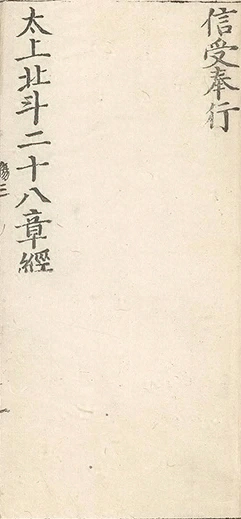 信受奉行
太上北斗二十八章經